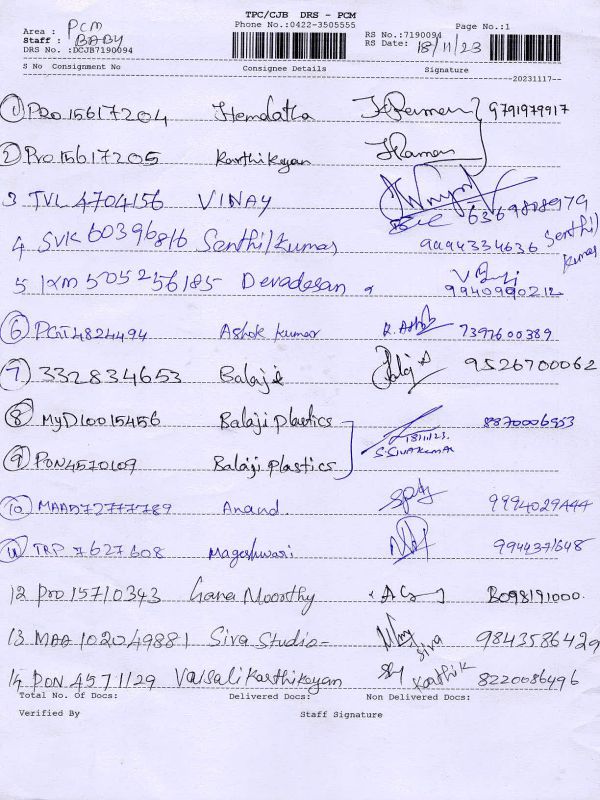 TPC/CJB DRS - PCM
Area : PCM Phone No.:0422-3505555 RS No.:7190094 Page No.:1
Staff : BABY RS Date: 18/11/23
DRS No. :DCJB7190094
S No Consignment No Consignee Details Signature
20231117
1 PRO15617204 Hemalatha 9791979917
2 Pro15617205 Karthikeyan HRaman
3 TVL 4704156 VINAY
4 SVK60396816 Senthilkumar 9994334636 Senthil Kumar
5 IXM 505256185 Devadasan 9940990212
6 PGT4824494 Ashok kumar R. Ashok 7397600389
7 332834653 Balaji Balaji 9526700062
8 MYD10015456 Balaji plastics 8870006553
18/11/23.
9 PON4570109 Balaji plastics S. SIVAKUMAR
10 MAA572777789 Anand 9994029444
11 TRP 7627608 Mageshwari 994437648
12 pro 15710343 Gana Moorthy
13 MAA 102049881 Siva Studio- Siva 9843586429
14 PON 4571129 Vaisali Karthikeyan Karthik 8220086496
Total No. Of Docs: Delivered Docs: Non Delivered Docs:
Verified By Staff Signature